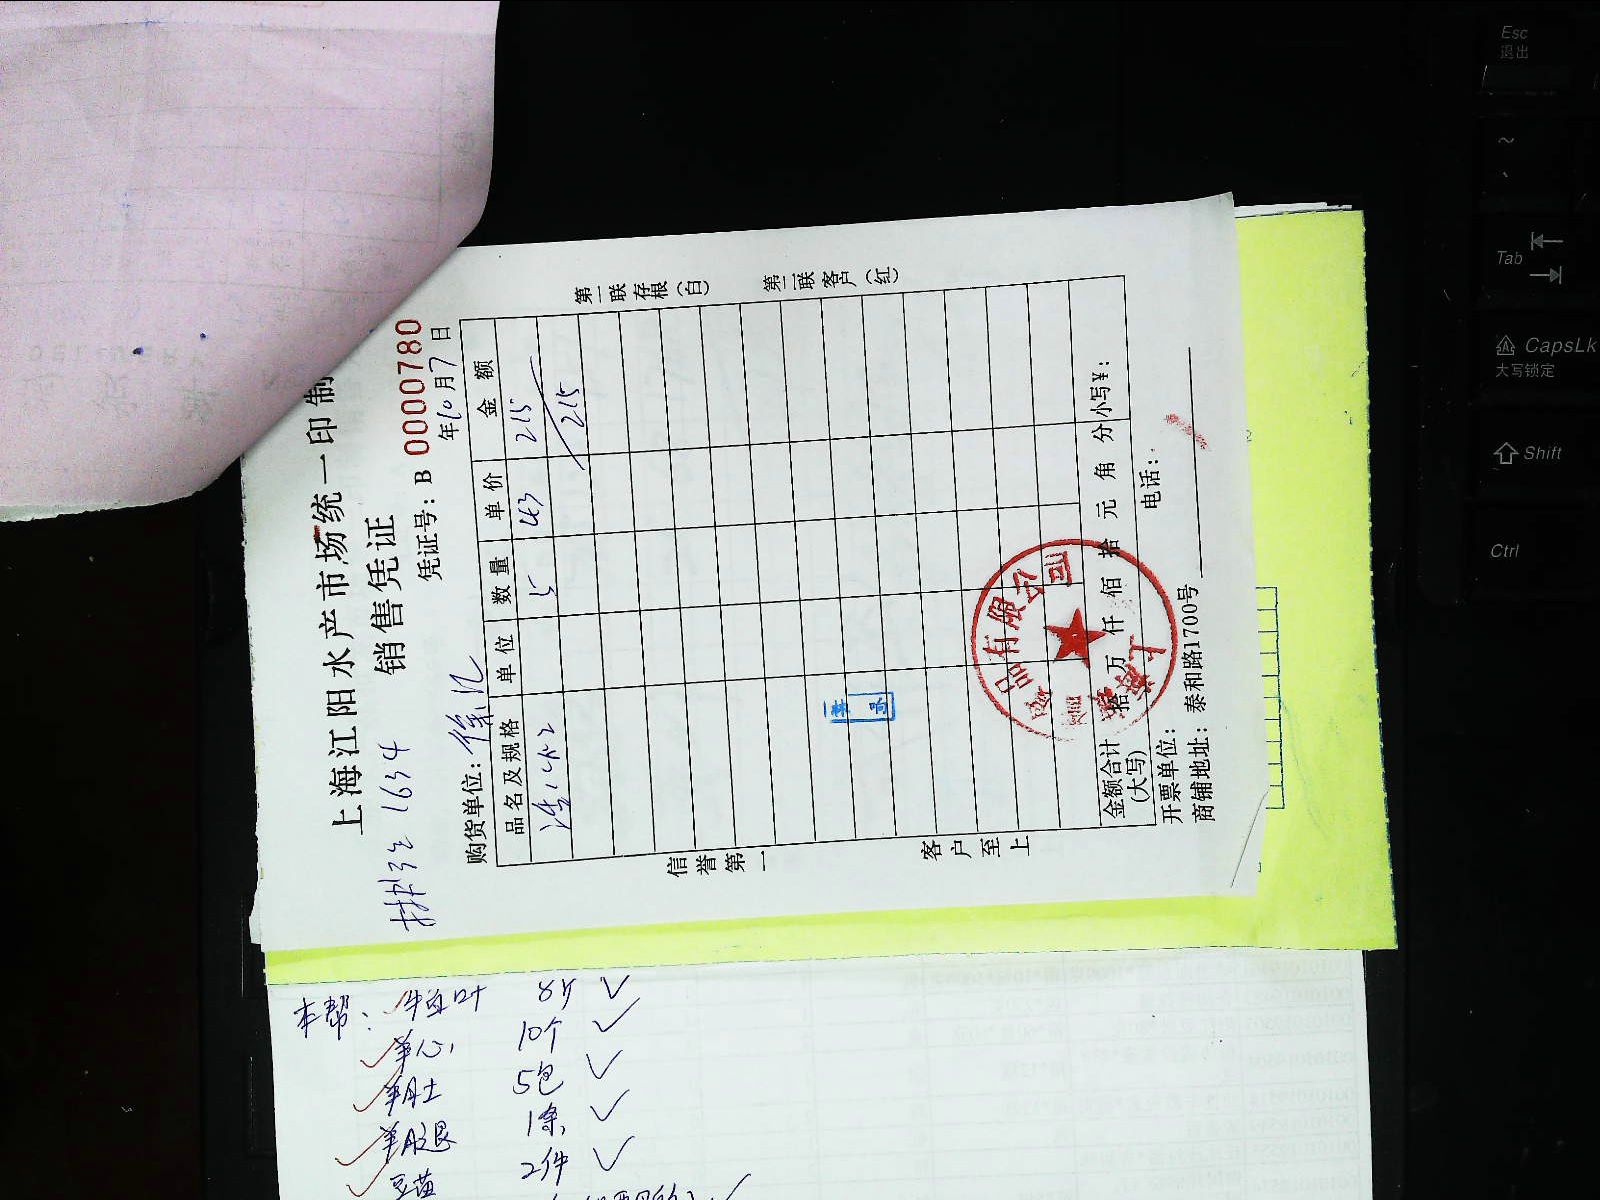 上海江阳水产市场统一印制
销售凭证
凭证号：B 0000780
年10月7日
购货单位：徐汇
品名及规格 单位 数量 单价 金额
5 43 215
215
第一联存根（白）
第二联客户（红）
信誉第一
客户至上
金额合计（大写） 拾 万 仟 佰 拾 元 角 分 小写¥：
开票单位： 电话：
商铺地址：泰和路1700号
品有限公司
上海
1634
本帮：牛百叶 8斤
羊心 10个
羊肚 5包
羊后腿 1条
豆苗 2件
Esc
退出
~
Tab
CapsLk
大写锁定
Shift
Ctrl